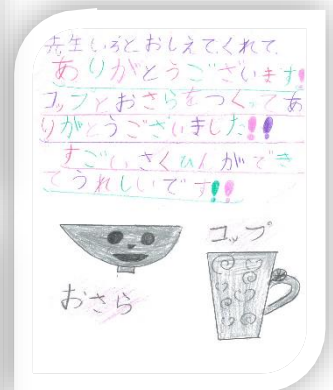 先生いろとおしえてくれて、
ありがとうございます!
コップとおさらをつくってあ
りがとうございました!!
すごいさくひんができ
てうれしいです!!
コップ
おさら